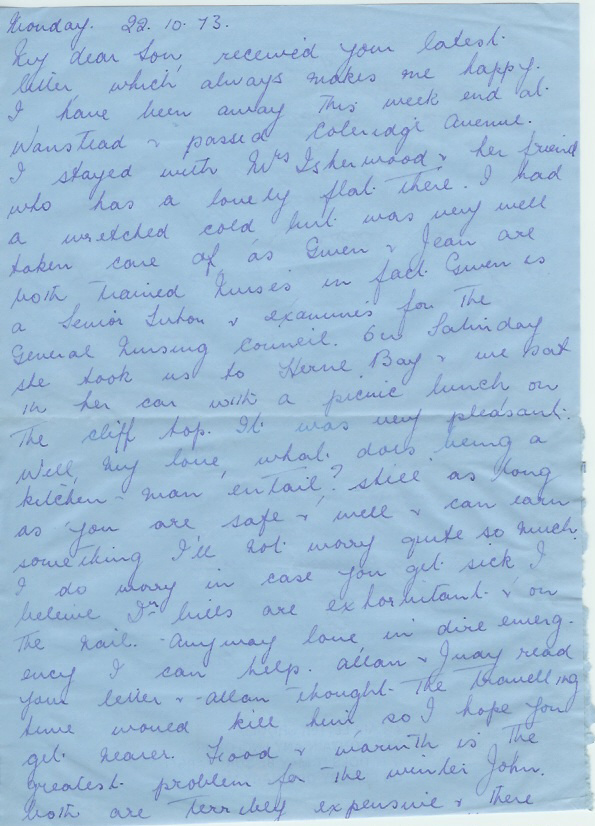 Monday. 22.10.73.
My dear Son, received your latest
letter which always makes me happy.
I have been away this week end at
Wanstead & passed Coleridge Avenue.
I stayed with Mrs Isherwood & her friend
who has a lovely flat there. I had
a wretched cold but was very well
taken care of as Gwen & Jean are
both trained Nurses in fact Gwen is
a Senior Tutor & examines for the
General Nursing Council. On Saturday
she took us to Herne Bay & we sat
in her car with a picnic lunch on
the cliff top. It was very pleasant.
Well, my love, what does being a
kitchen-man entail? still as long
as you are safe & well & can earn
something I'll not worry quite so much.
I do worry in case you get sick I
beleive Drs bills are exhorbitant & on
the nail. Anyway love in dire emerg-
ency I can help. Allan & Judy read
your letter & Allan thought the travelling
time would kill him so I hope you
get nearer. Food & warmth is the
greatest problem for the winter John.
both are terribly expensive & there